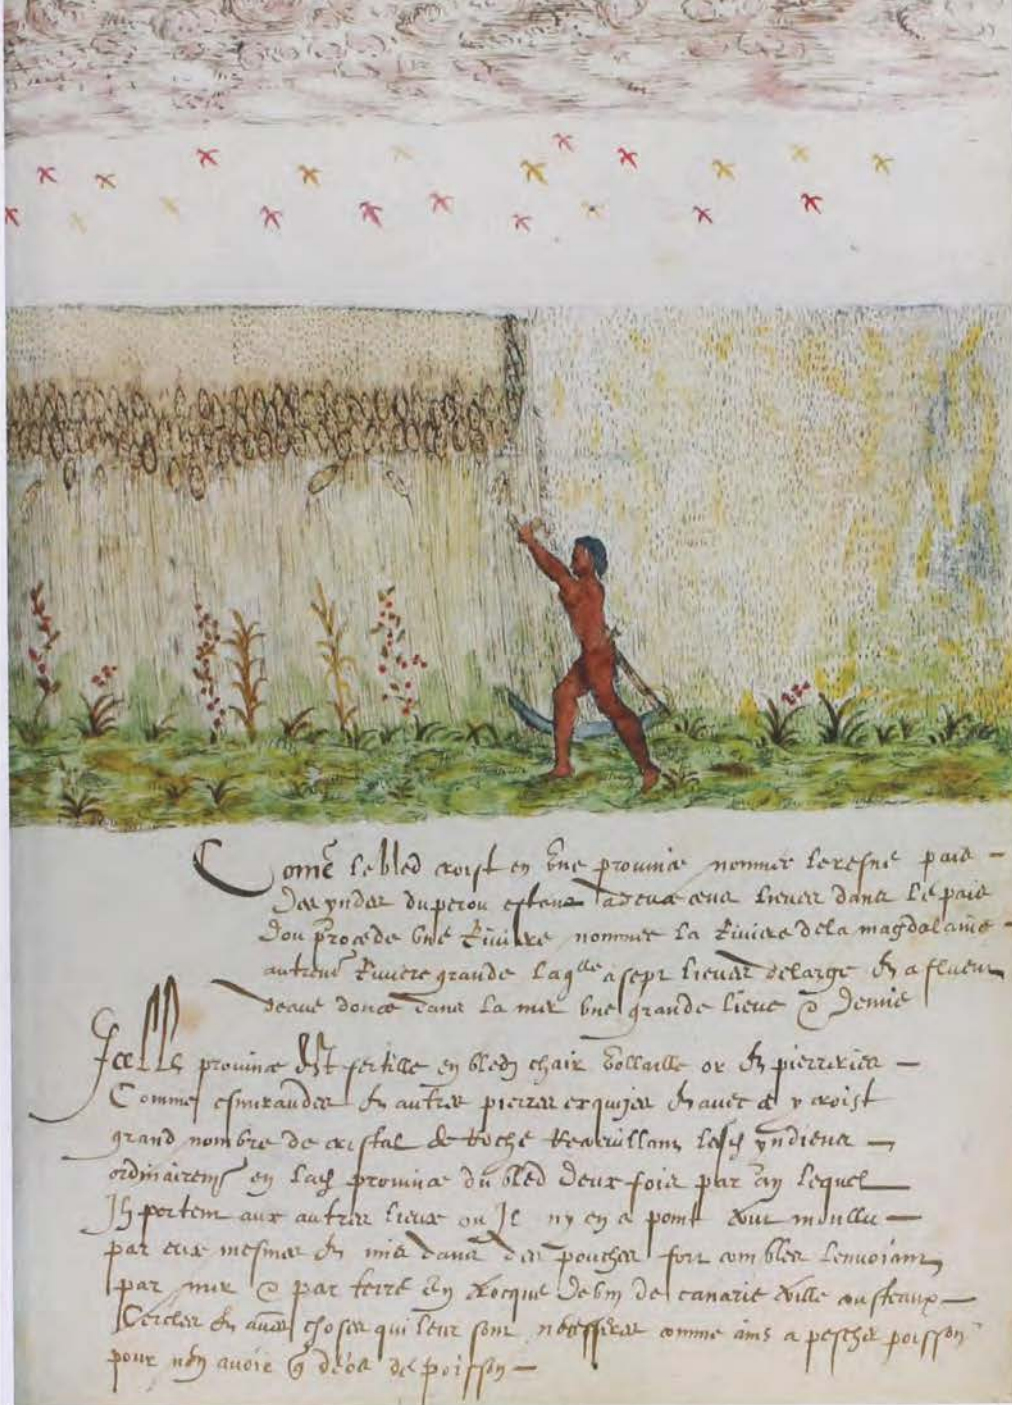 Come le bled croist en une province nommee le resne pais
Des yndes du perou estant a deux cens lieues dans le pais
Dou procede une Riviere nommee La Riviere de la magdalaine
autrem Riviere grande Laqlle a sept lieues de large Et a flueur
deaue douce dans La mer une grande lieue & demie
Icelle province Est fertille en bled chair vollaille or Et pierreries
Comme esmiraudes Et autres pierres exquises Et avec ce y croist
grand nombre de cristal de Roche Recuillans lesd yndiens
ordinairemt en lad province du bled deux fois par an Lequel
Ilz portent aux autres lieux ou Il ny en a point moullu
par eux mesmes Et mis dans des pouches fort combles Lenvoiant
par mer & par terre En de vin de canarie cousteaux
Cercles Et aues choses qui leur sont necesseres comme ains a pescher poisson
pour non avoir de poisson